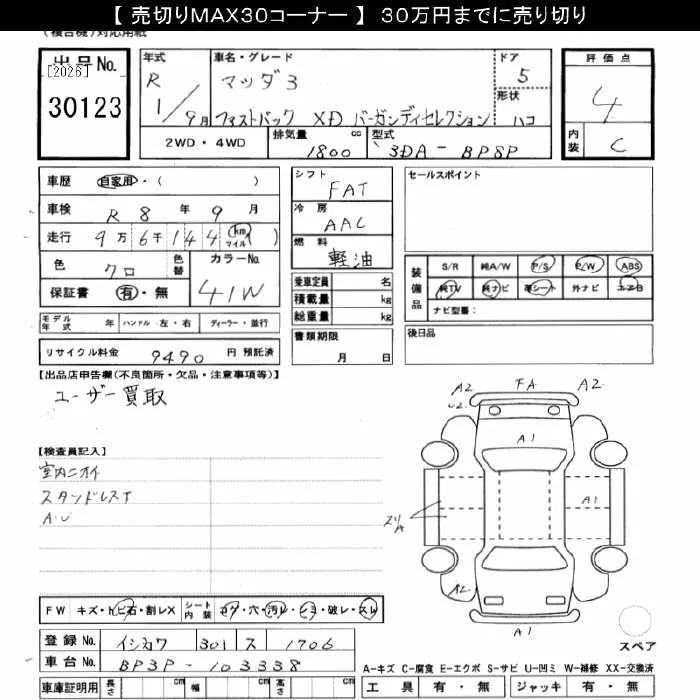 【 売切りMAX30コーナー 】 30万円までに売り切り
(複合機)対応用紙
出品No.
[2026]
30123
年式
R 1/9月
車名・グレード
マツダ3
ファストバック XD バーガンディセレクション
ドア
5
形状
ハコ
評価点
4
内装
C
2WD・4WD
排気量
1800 cc
型式
3DA - BP8P
車歴 自家用・( )
車検 R 8 年 9 月
走行 9万6千144 km マイル ( )
色 クロ 色替
カラーNo.
41W
保証書 有・無
モデル年式 年 ハンドル 左・右 ディーラー・並行
リサイクル料金 9490 円 預託済
シフト
FAT
冷房
AAC
燃料
軽油
乗車定員 名
積載量 kg
総重量 kg
書類期限
月 日
セールスポイント
装備品
S/R 純A/W P/S P/W ABS
純TV 純ナビ 革シート 外ナビ エアB
ナビ型番:
後日品
【出品店申告欄(不良箇所・欠品・注意事項等)】
ユーザー買取
【検査員記入】
室内ニオイ
スタンドレスT
A.U
A2 FA A2
U2
A1
A1
A2
A1
FW キズ・トビ石・割レX シート内装 コゲ・穴・汚レ・シミ・破レ・スレ
登録No. イシカワ 301 ス 1706
車台No. BP3P - 103338
車庫証明用 長さ cm 幅 cm 高さ cm
スペア
A-キズ C-腐食 E-エクボ S-サビ U-凹ミ W-補修 XX-交換済
工具 有・無 ジャッキ 有・無